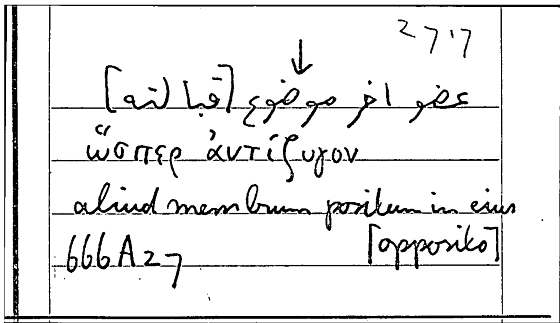 2717
↓
عضو اخر موضوع [قبالته]
ὥσπερ ἀντίζυγον
aliud membrum positum in eius
666A27 [opposito]